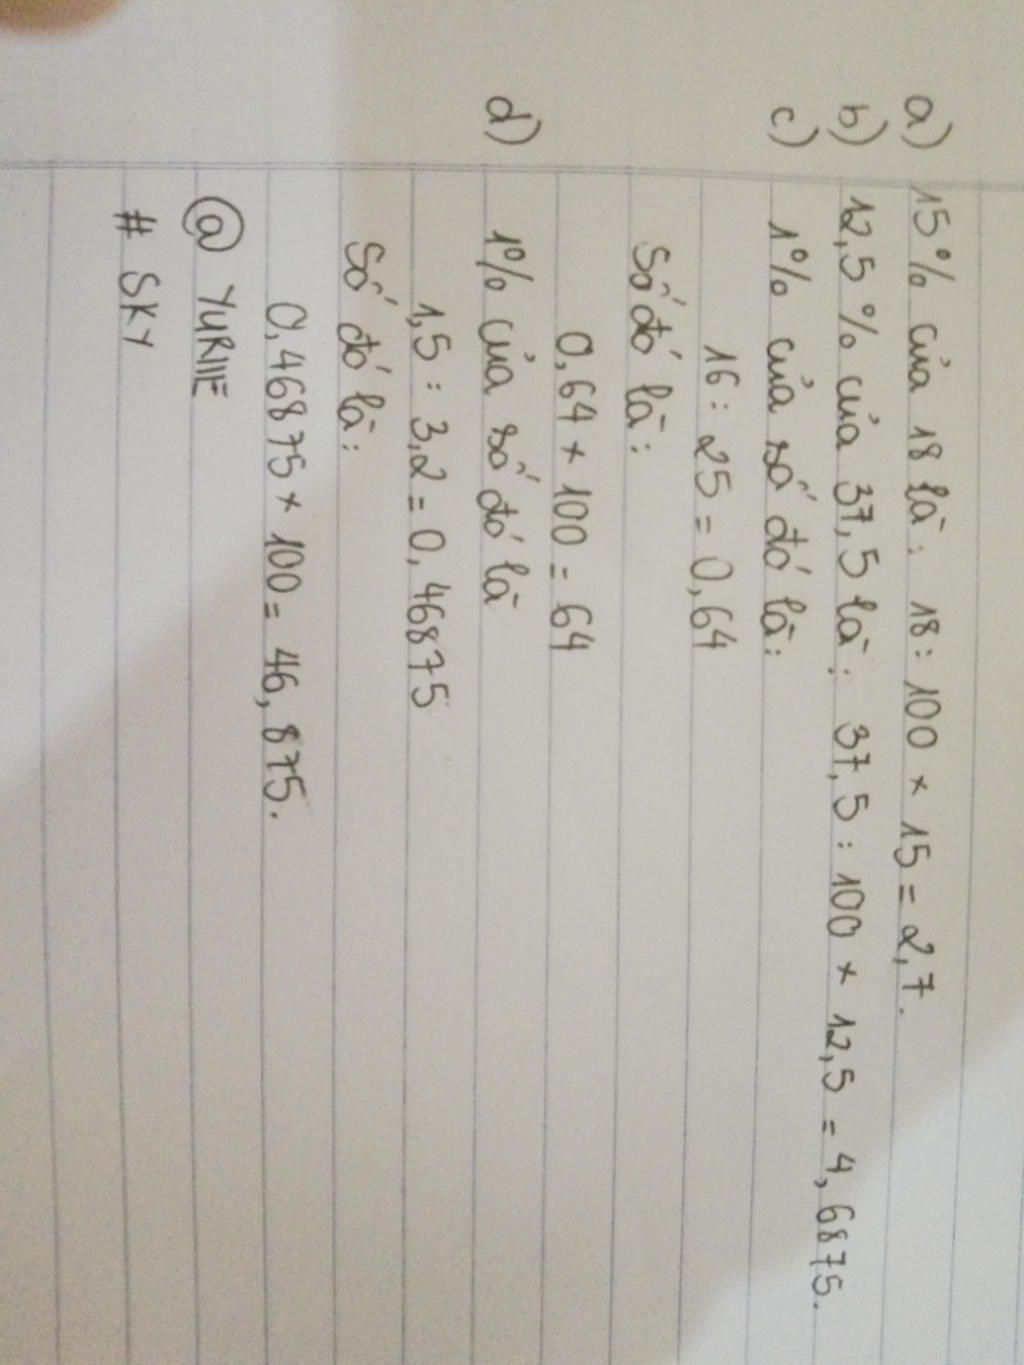 a) 15% của 18 là: 18 : 100 × 15 = 2,7.
b) 12,5% của 37,5 là: 37,5 : 100 × 12,5 = 4,6875.
c) 1% của số đó là:
16 : 25 = 0,64
Số đó là:
0,64 × 100 = 64
d) 1% của số đó là
1,5 : 3,2 = 0,46875
Số đó là:
0,46875 × 100 = 46,875.
@ YURIIE
# SKY